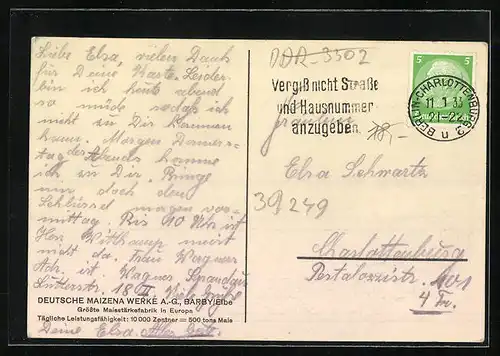 Liebe Elsa, vielen Dank
für Deine Karte. Leider
bin ich heute abend
so müde, daß ich
nicht zu Dir kommen
kann. Morgen Donners-
tag Abend komme
ich zu Dir. Bringe
mir doch den
Schlüssel morgen vor-
mittag. Bis 10 Uhr ist
Herr
nicht da. Frau Wagner
Adr. ist Wagner Spandau
Lutherstr. 18 III. Viele Grüße
DEUTSCHE MAIZENA WERKE A.-G., BARBY/Elbe
Größte Maisstärkefabrik in Europa
Tägliche Leistungsfähigkeit: 10 000 Zentner = 500 tons Mais
Deine Elsa.
DDR-3302
Vergiß nicht Straße
und Hausnummer
anzugeben
5 5
BERLIN-CHARLOTTENBURG 2
11.1.33
21-22
n
18,-
Fräulein
Elsa Schwartz
39249
Charlottenburg
Pestalozzistr. 101
4 Tr.